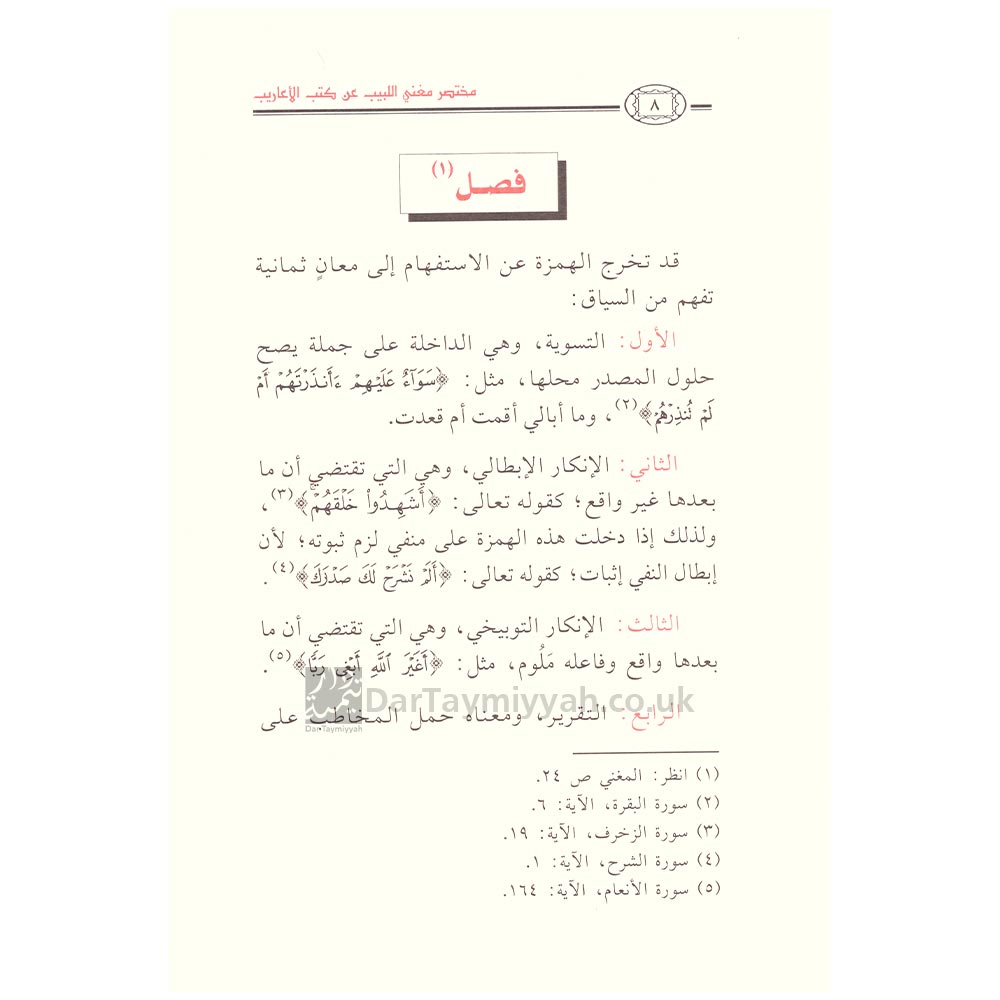 مختصر مغني اللبيب عن كتب الأعاريب
٨
فصل (١)
قد تخرج الهمزة عن الاستفهام إلى معانٍ ثمانية
تفهم من السياق:
الأول: التسوية، وهي الداخلة على جملة يصح
حلول المصدر محلها، مثل: ﴿سَوَآءٌ عَلَيْهِمْ ءَأَنذَرْتَهُمْ أَمْ
لَمْ تُنذِرْهُمْ﴾(٢)، وما أبالي أقمت أم قعدت.
الثاني: الإنكار الإبطالي، وهي التي تقتضي أن ما
بعدها غير واقع؛ كقوله تعالى: ﴿أَشَهِدُوا۟ خَلْقَهُمْ﴾(٣)،
ولذلك إذا دخلت هذه الهمزة على منفي لزم ثبوته؛ لأن
إبطال النفي إثبات؛ كقوله تعالى: ﴿أَلَمْ نَشْرَحْ لَكَ صَدْرَكَ﴾(٤).
الثالث: الإنكار التوبيخي، وهي التي تقتضي أن ما
بعدها واقع وفاعله مَلُوم، مثل: ﴿أَغَيْرَ ٱللَّهِ أَبْغِى رَبًّا﴾(٥).
DarTaymiyyah.co.uk
DarTaymiyyah
الرابع: التقرير، ومعناه حمل المخاطب على
(١) انظر: المغني ص ٢٤.
(٢) سورة البقرة، الآية: ٦.
(٣) سورة الزخرف، الآية: ١٩.
(٤) سورة الشرح، الآية: ١.
(٥) سورة الأنعام، الآية: ١٦٤.